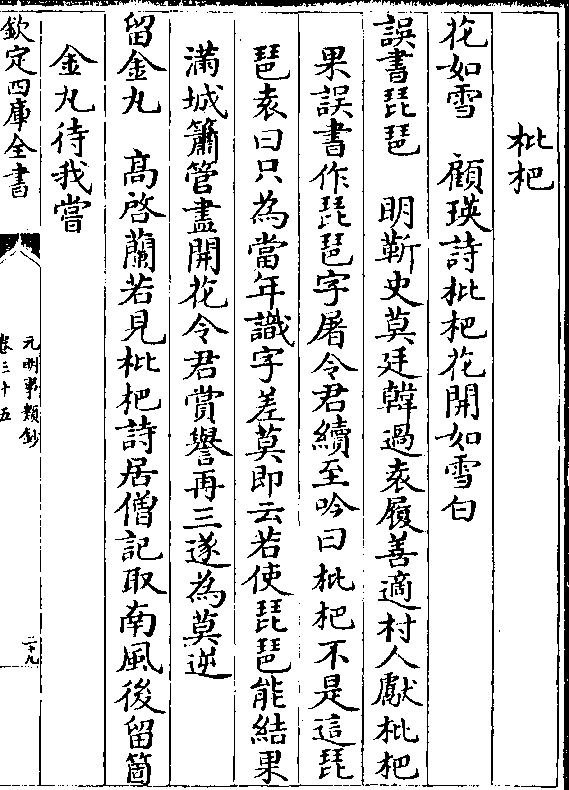 枇杷
花如雪　顧瑛詩枇杷花開如雪白
誤書琵琶　明靳史莫廷韓過袁履善適村人獻枇杷
果誤書作琵琶字屠令君續至吟曰枇杷不是這琵
琶袁曰只為當年識字差莫即云若使琵琶能結果
滿城簫管盡開花令君賞譽再三遂為莫逆
留金丸　高啓蘭若見枇杷詩居僧記取南風後留箇
金丸待我嘗
欽定四庫全書
元明事類鈔
卷三十五
二十九